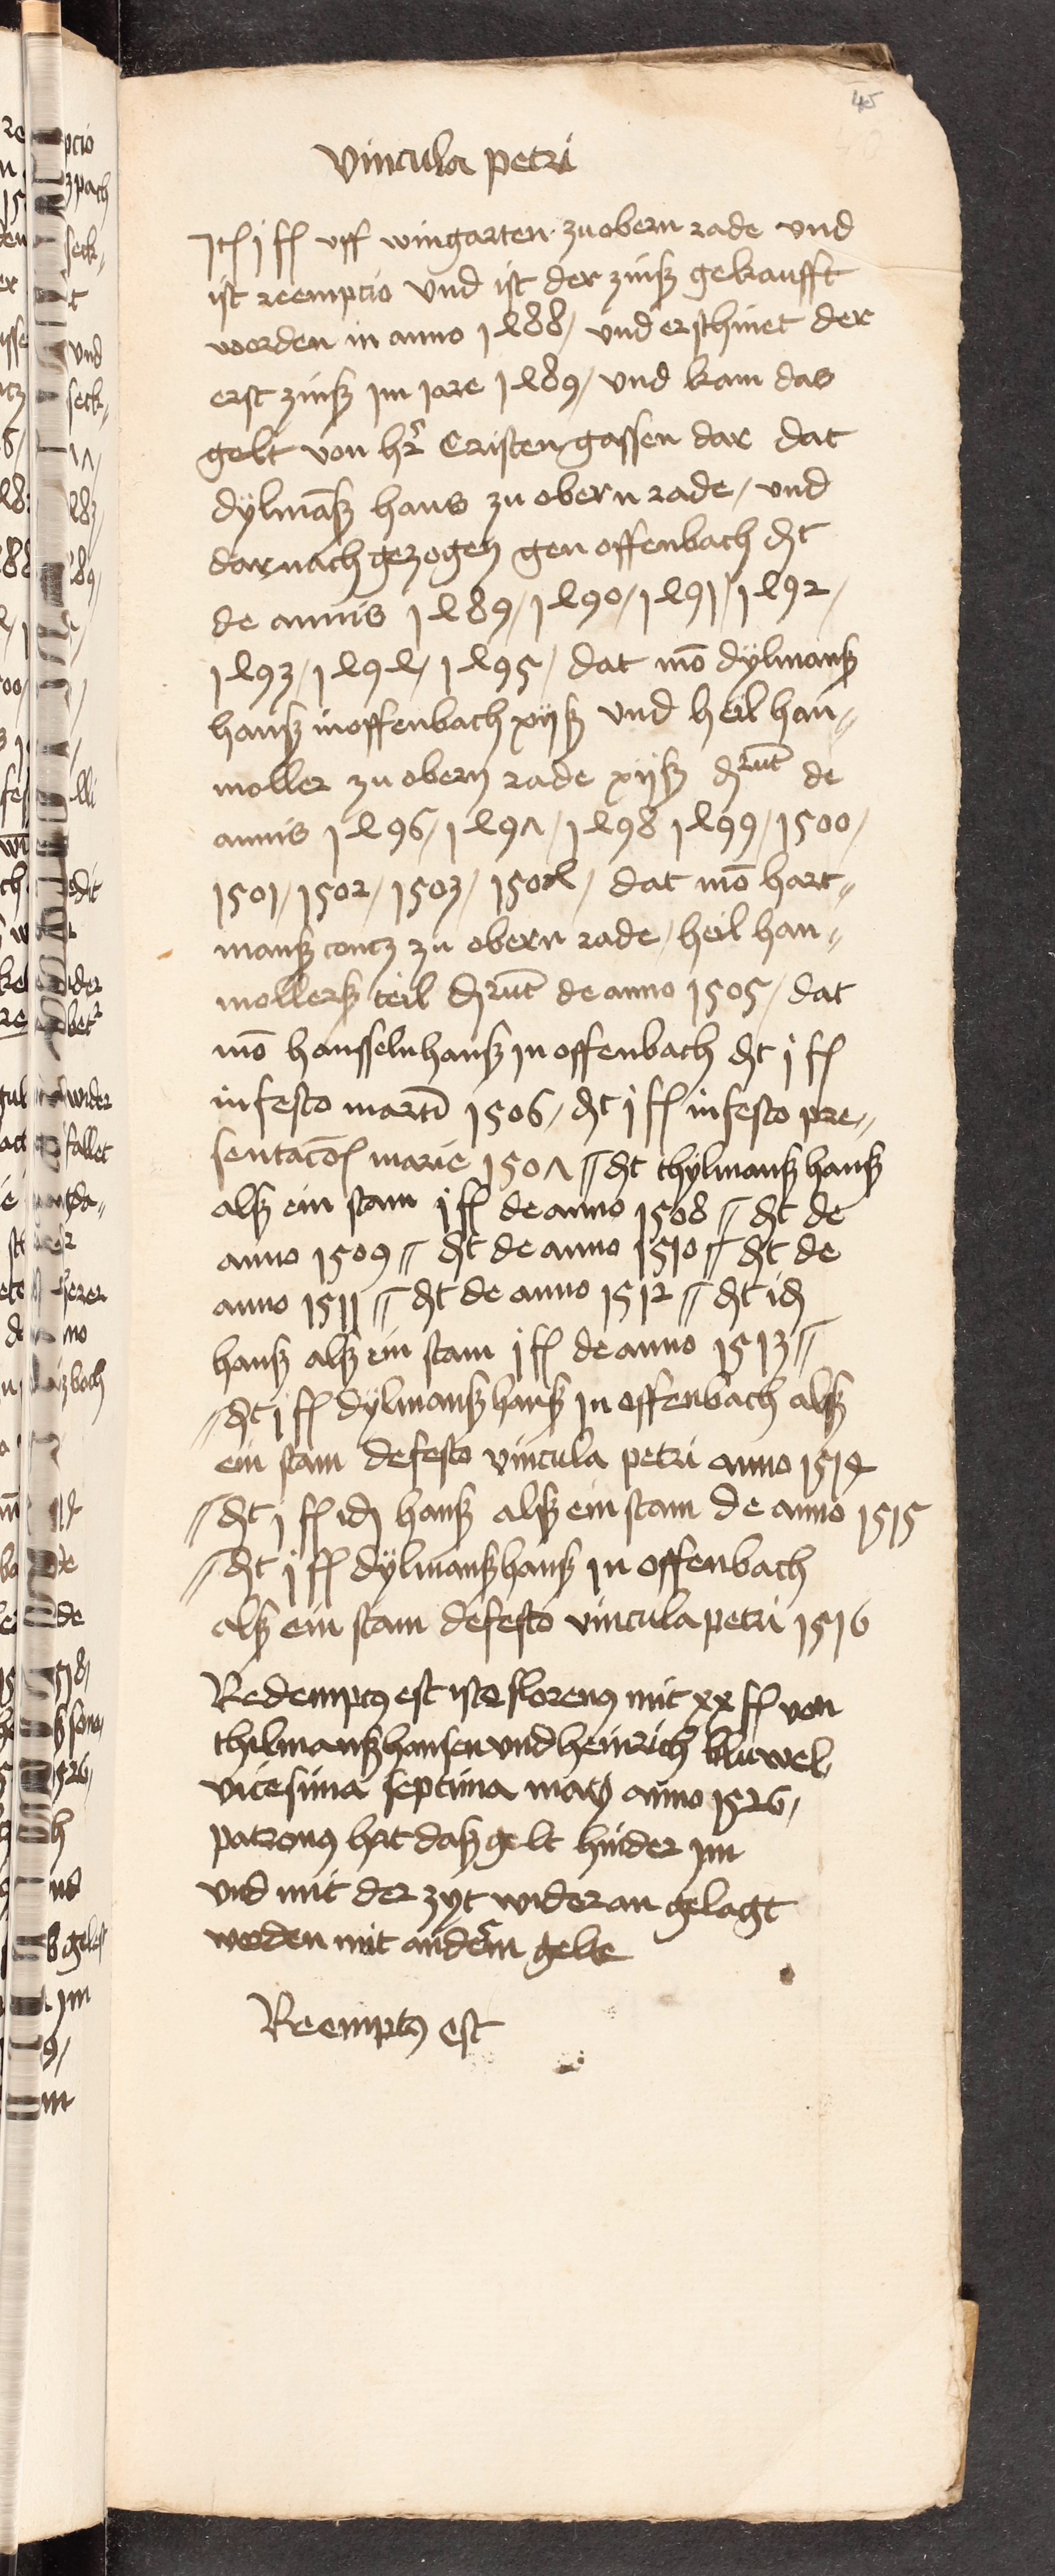 45
Vincula petri
Jt̃ j fl uff wingarten zu obern rade und
ist reempcio Und ist der zinß gekaufft
worden in anno 1488/ und erschinet der
erst zinß jm jare 1489/ und kam das
gelt von hr̃ Cristen gassen dar dat
dylmãß hans zu obern rade/ und
darnach gezogen gen offenbach dt
de annis 1489/ 1490/ 1491/ 1492/
1493/ 1494/ 1495/ dat mõ dylmanß
hanß in offenbach xijß und heil han„
moller zu obern rade xijß drũt de
annis 1496/ 1497/ 1498 1499/ 1500/
1501/ 1502/ 1503/ 1504/ dat mõ hart„
manß contz zu obern rade/ heil han„
mollerß teil drũt de anno 1505/ dat
mõ hansseln hanß jn offenbach dt j fl
in festo martĩ 1506/ dt j fl in festo pre„
sentacõ marie 1507 // dt thylmanß hanß
alß ein stam j fl de anno 1508 // dt de
anno 1509 // dt de anno 1510 // dt de
anno 1511 // dt de anno 1512 // dt id
hanß alß ein stam j fl de anno 1513 //
// dt j fl dylmanß hanß jn offenbach alß
ein stam de festo vincula petri anno 1514
// dt j fl id hanß alß ein stam de anno 1515
// dt j fl dylmanß hanß jn offenbach
alß ein stam de festo vincula petri 1516
Redemptꝰ est iste florenꝰ mit xx fl von
thilmanß hansen und heinrich kluwel
vicesima septima maij anno 1526/
patronꝰ hat daß gelt hinder jm
und mit der zyt wider an gelagt
werden mit anderm gelt
Reemptꝰ est